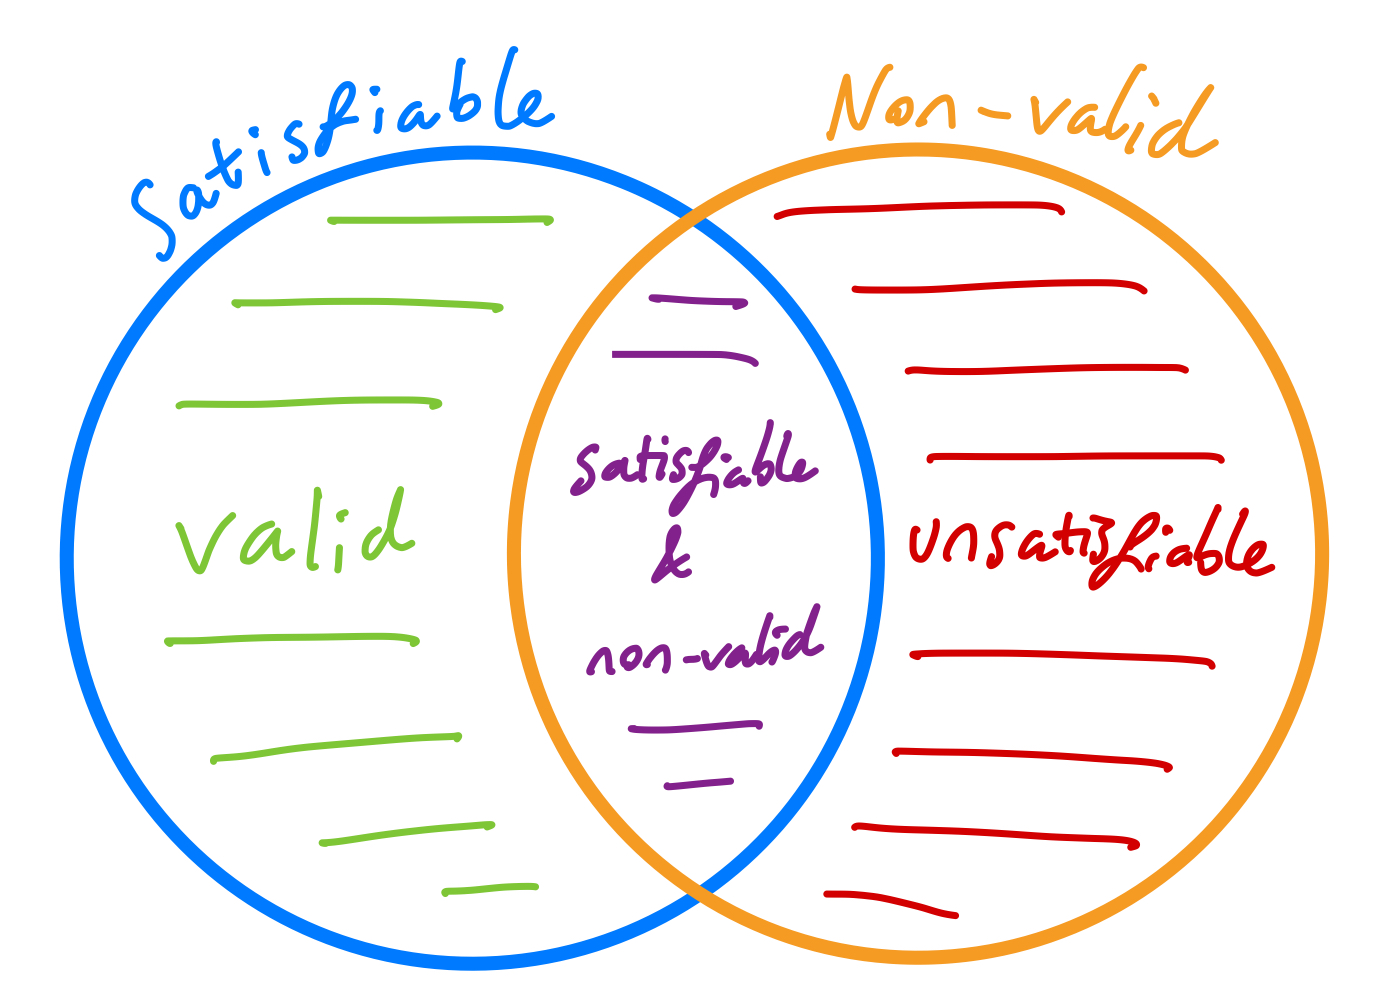 Satisfiable
Non-valid
valid
satisfiable
&
non-valid
unsatisfiable